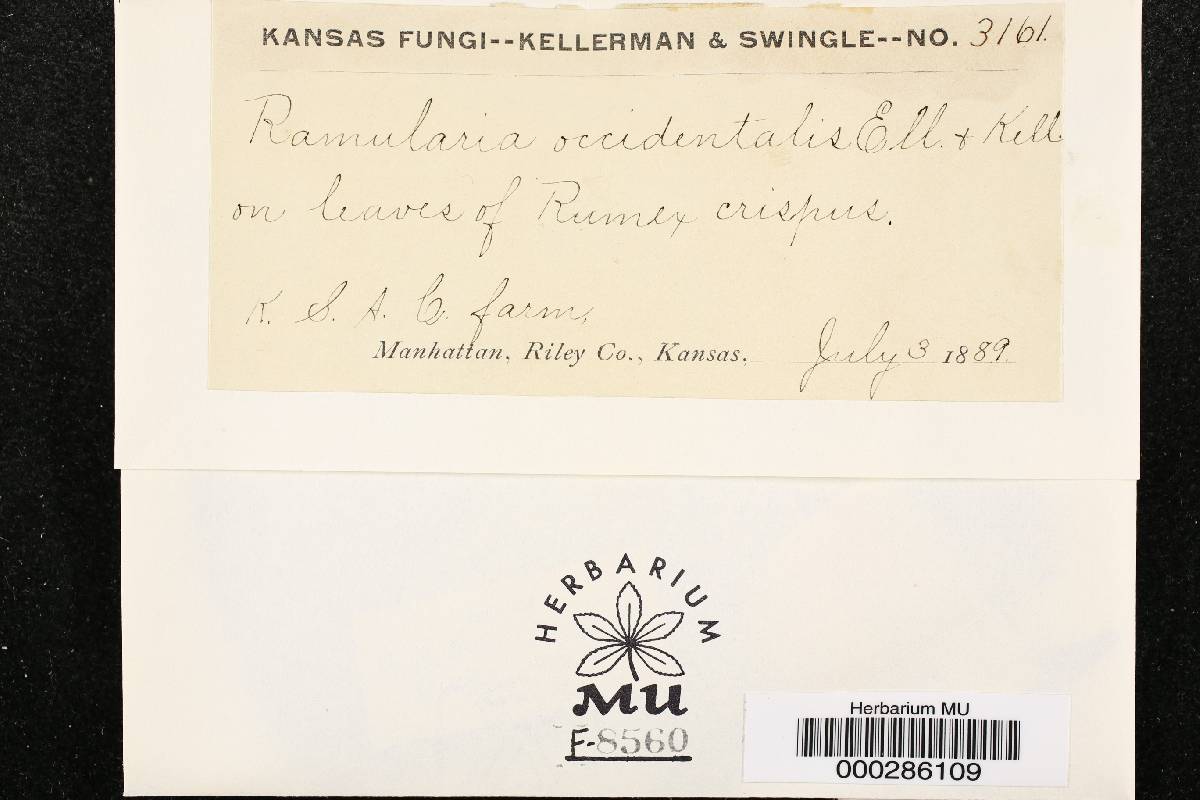 KANSAS FUNGI--KELLERMAN & SWINGLE--NO. 3161.
Ramularia occidentalis Ell. & Kell.
on leaves of Rumex crispus.
K. S. A. C. farm,
Manhattan, Riley Co., Kansas, July 3 1889.
HERBARIUM
MU
F-8560
Herbarium MU
000286109